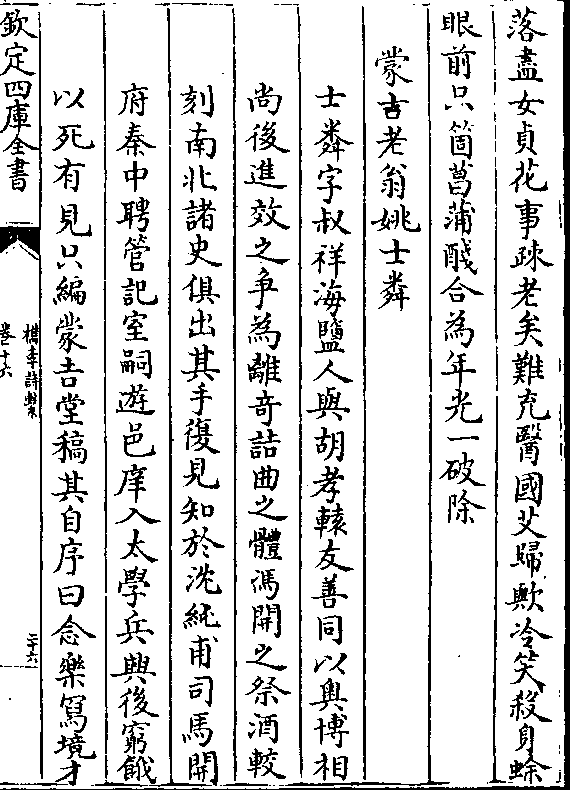 落盡女貞花事疎老矣難充醫國艾歸歟冷笑殺身蜍
眼前只箇菖蒲醆合為年光一破除
蒙吉老翁姚士粦
士粦字叔祥海鹽人與胡孝轅友善同以奧博相
尚後進效之爭為離奇詰曲之體馮開之祭酒較
刻南北諸史俱出其手復見知於沈純甫司馬開
府秦中聘管記室嗣遊邑庠入太學兵興後窮餓
以死有見只編蒙吉堂稿其自序曰念樂寫境才
欽定四庫全書
檇李詩繫
卷十六
二十六